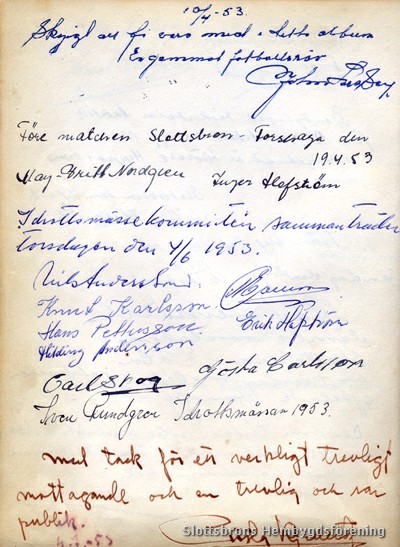 10/4-53.
att få vara med i detta album
En gammal fotbollsräv
Före matchen Slottsbron - Forshaga den
19.4.53
May-Britt Nordgren Inger Hofström
Idrottsmässekommittén sammanträder
torsdagen den 4/6 1953.
Nils Andersson
Knut Karlsson
Hans Pettersson Erik
Hilding Andersson
Carl Skog Gösta Carlsson
Sven Rundgren Idrottsmässan 1953.
med tack för ett verkligt trevligt
mottagande och en trevlig och rar
publik.
Slottsbrons Hembygdsförening